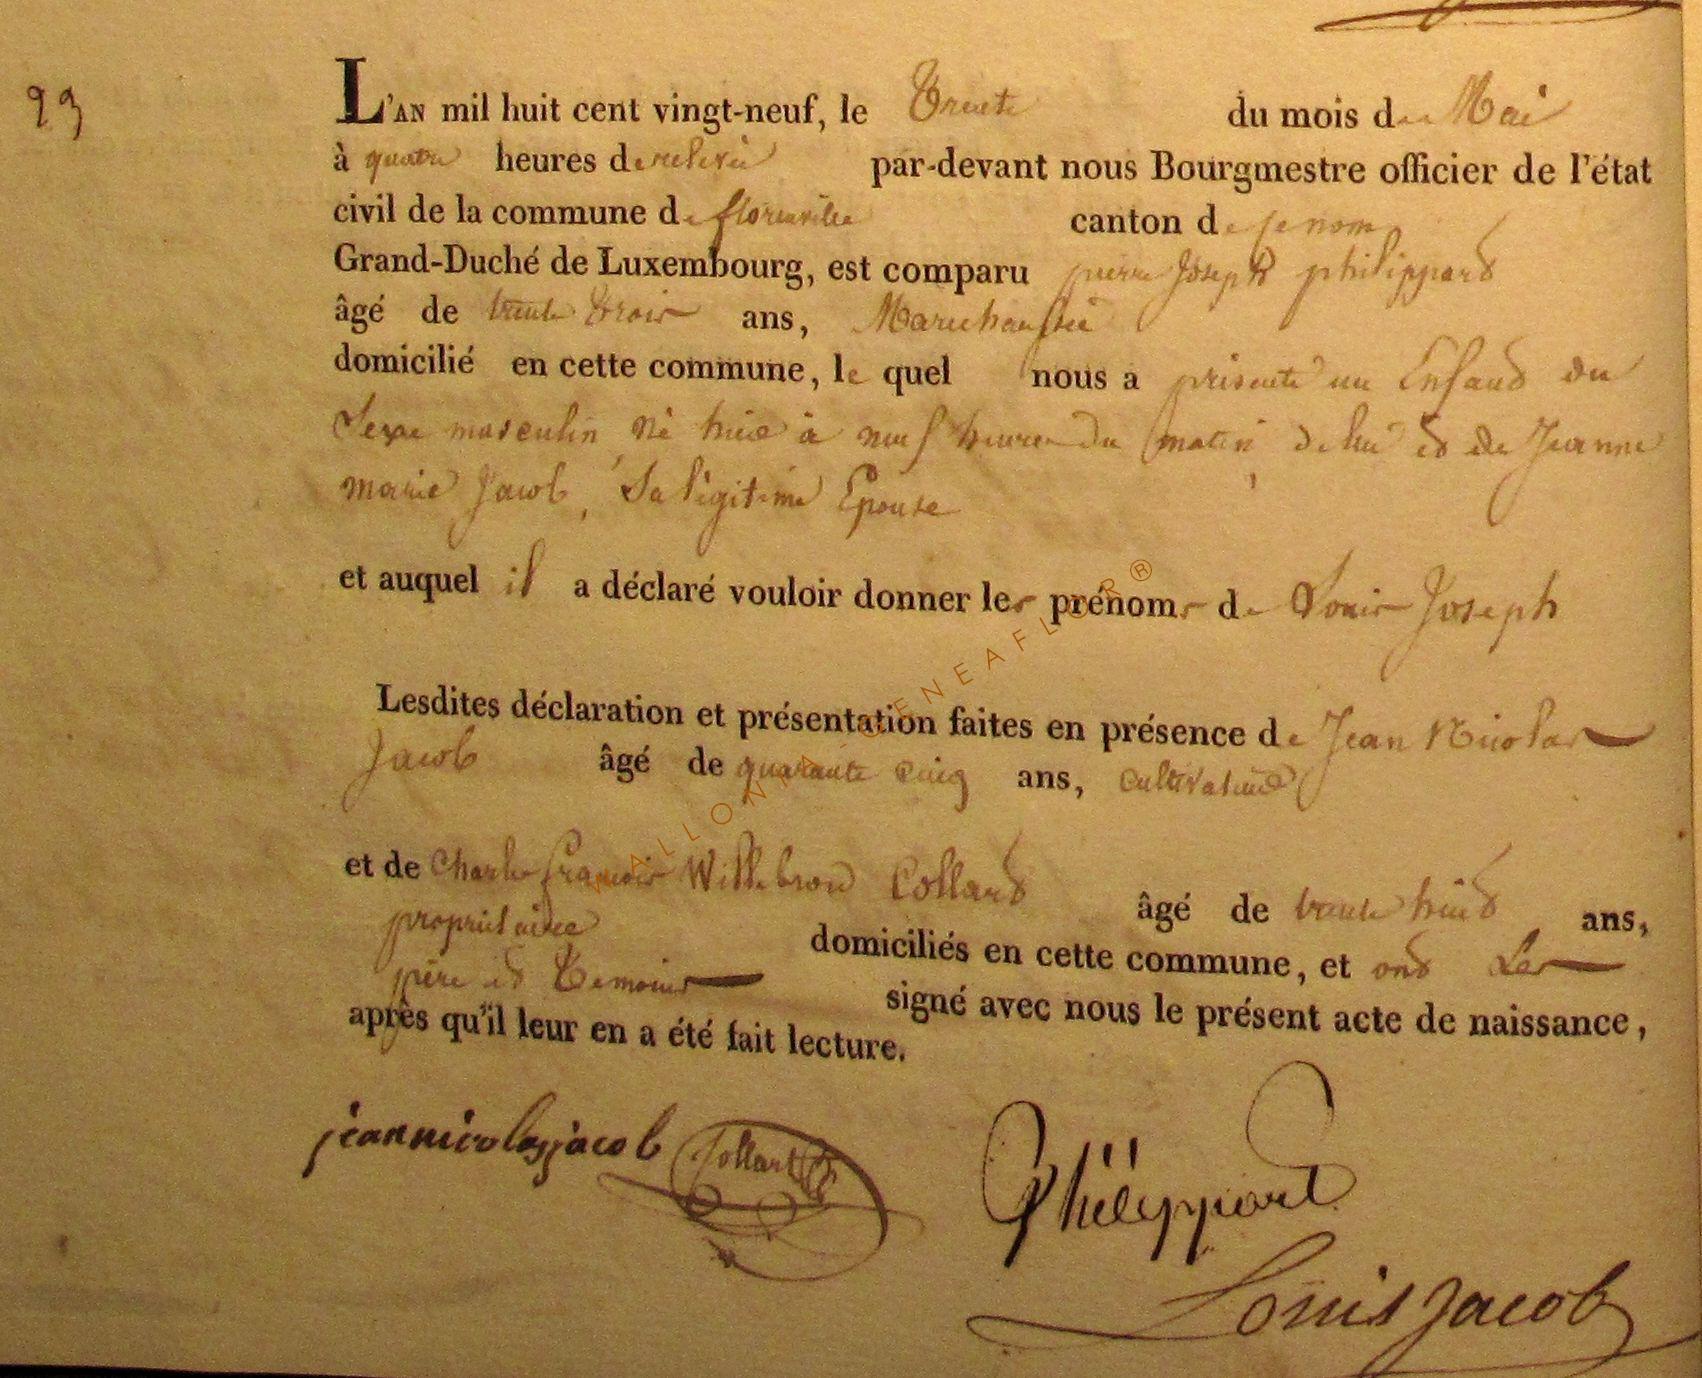 23
L'AN mil huit cent vingt-neuf, le Trente du mois de Mai
à quatre heures de relevée par-devant nous Bourgmestre officier de l'état
civil de la commune de florenville canton de
Grand-Duché de Luxembourg, est comparu pierre Joseph philippard
âgé de trente trois ans, Marechal
domicilié en cette commune, le quel nous a présenté un Enfand du
Sexe masculin, né hier à neuf heures du matin, de lui et de Jeanne
marie Jacob, Sa légitime Epouse
et auquel il a déclaré vouloir donner les prénoms de Louis Joseph
Lesdites déclaration et présentation faites en présence de Jean Nicolas
Jacob âgé de quarante cinq ans, cultivateur
et de Charles françois Willebrord Collard âgé de trente huit ans,
propriétaire domiciliés en cette commune, et ont Les
père et Temoins signé avec nous le présent acte de naissance,
après qu'il leur en a été fait lecture.
jean nicolas jacob Collart Philippard
Louis Jacob
WALLONIA GENEAFLOR®